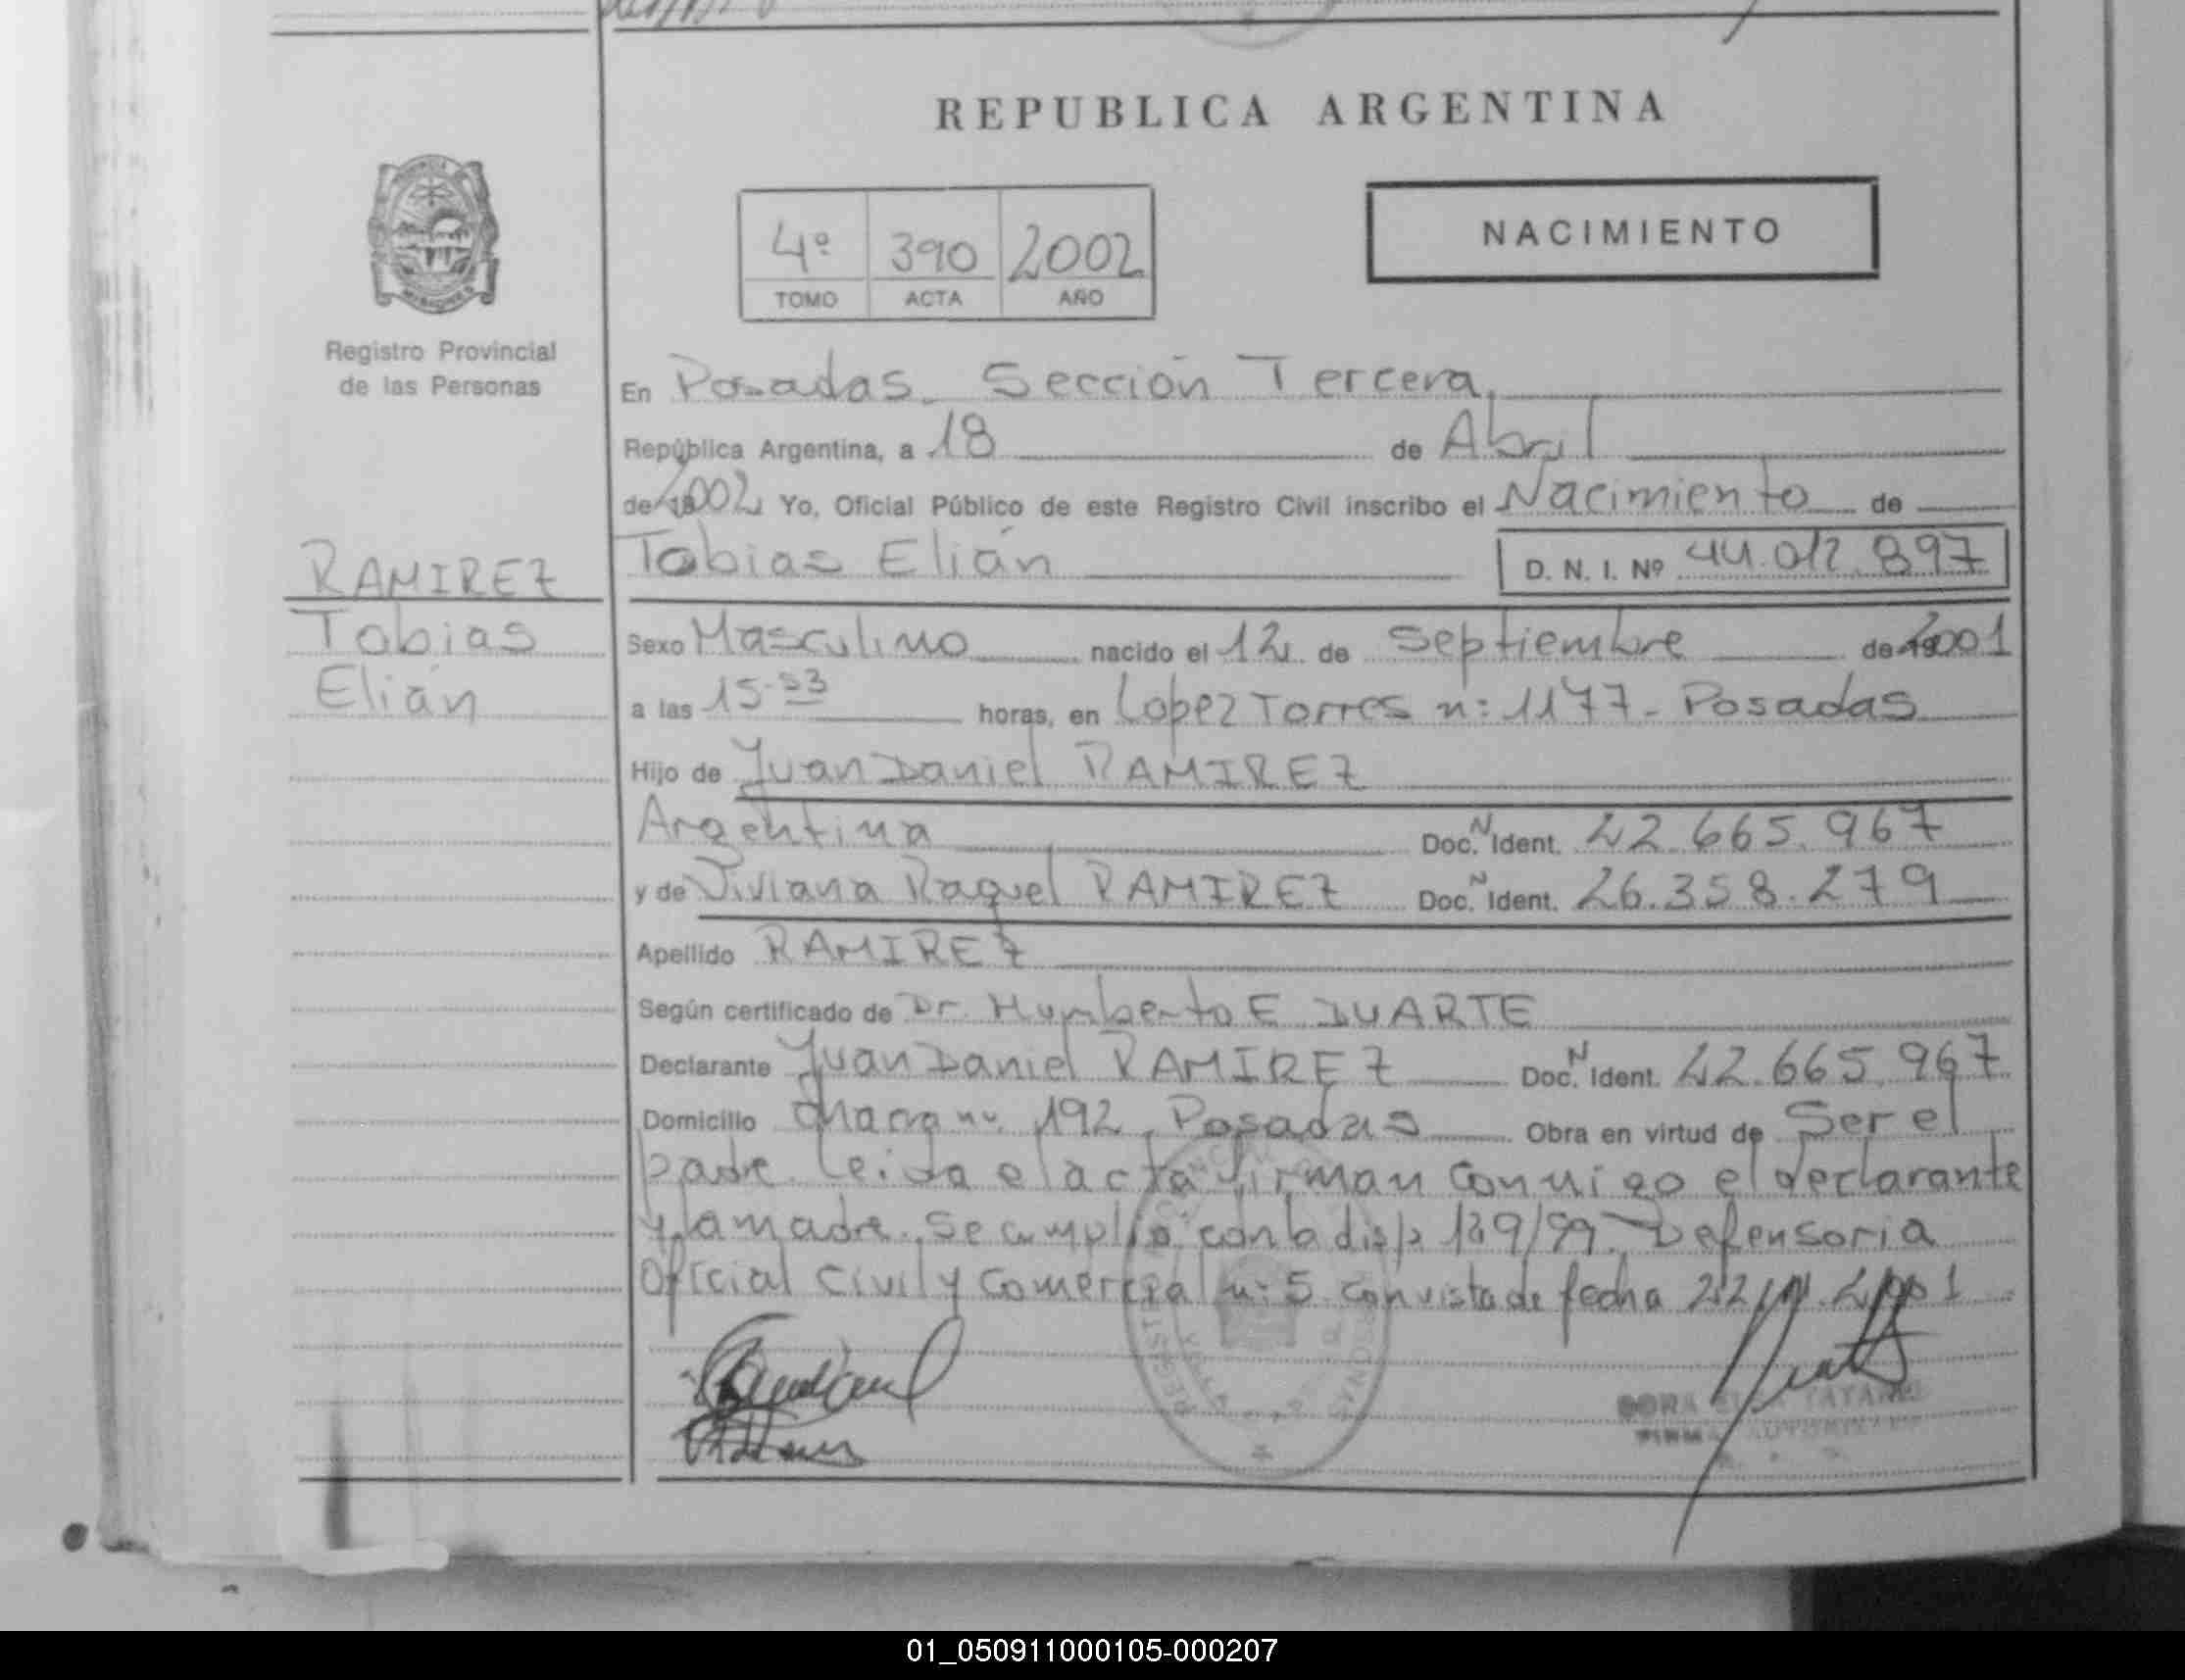 REPUBLICA ARGENTINA
NACIMIENTO
4º 390 2002
TOMO ACTA AÑO
MISIONES
Registro Provincial
de las Personas
En Posadas. Sección Tercera
República Argentina, a 18 de Abril
de 2002 Yo, Oficial Público de este Registro Civil inscribo el Nacimiento de
RAMIREZ
Tobias
Elián
Tobias Elián D. N. I. Nº 44.012.897
Sexo Masculino nacido el 12 de Septiembre de 2001
a las 15.53 horas, en Lopez Torres n: 1177 - Posadas
Hijo de Juan Daniel RAMIREZ
Argentina Doc. N Ident. 22.665.967
y de Viviana Raquel RAMIREZ Doc. N Ident. 26.358.279
Apellido RAMIREZ
Según certificado de Dr. Humberto E DUARTE
Declarante Juan Daniel RAMIREZ Doc. N Ident. 22.665.967
Domicilio 192, Posadas Obra en virtud de Ser el
padre. Leida el acta firman conmigo el declarante
y la madre. Se cumplio con la disp 139/99. Defensoria
Oficial Civil y Comercial n: 5 con vista de fecha
DORA
01_050911000105-000207